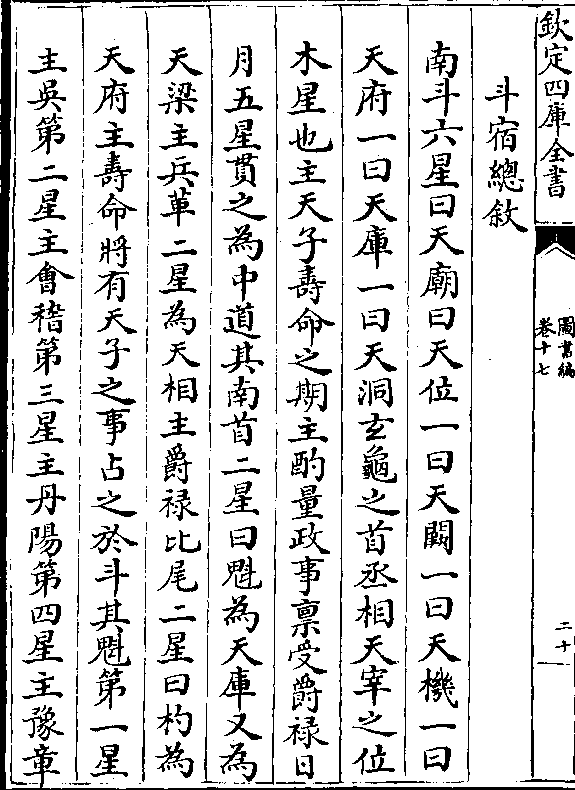 欽定四庫全書
圖書編
卷十七
二十
斗宿總敘
南斗六星曰天廟曰天位一曰天闕一曰天機一曰
天府一曰天庫一曰天洞玄龜之首丞相天宰之位
木星也主天子壽命之期主酌量政事禀受爵禄日
月五星貫之為中道其南首二星曰魁為天庫又為
天梁主兵革二星為天相主爵禄比尾二星曰杓為
天府主壽命將有天子之事占之於斗其魁第一星
主吳第二星主會稽第三星主丹陽第四星主豫章